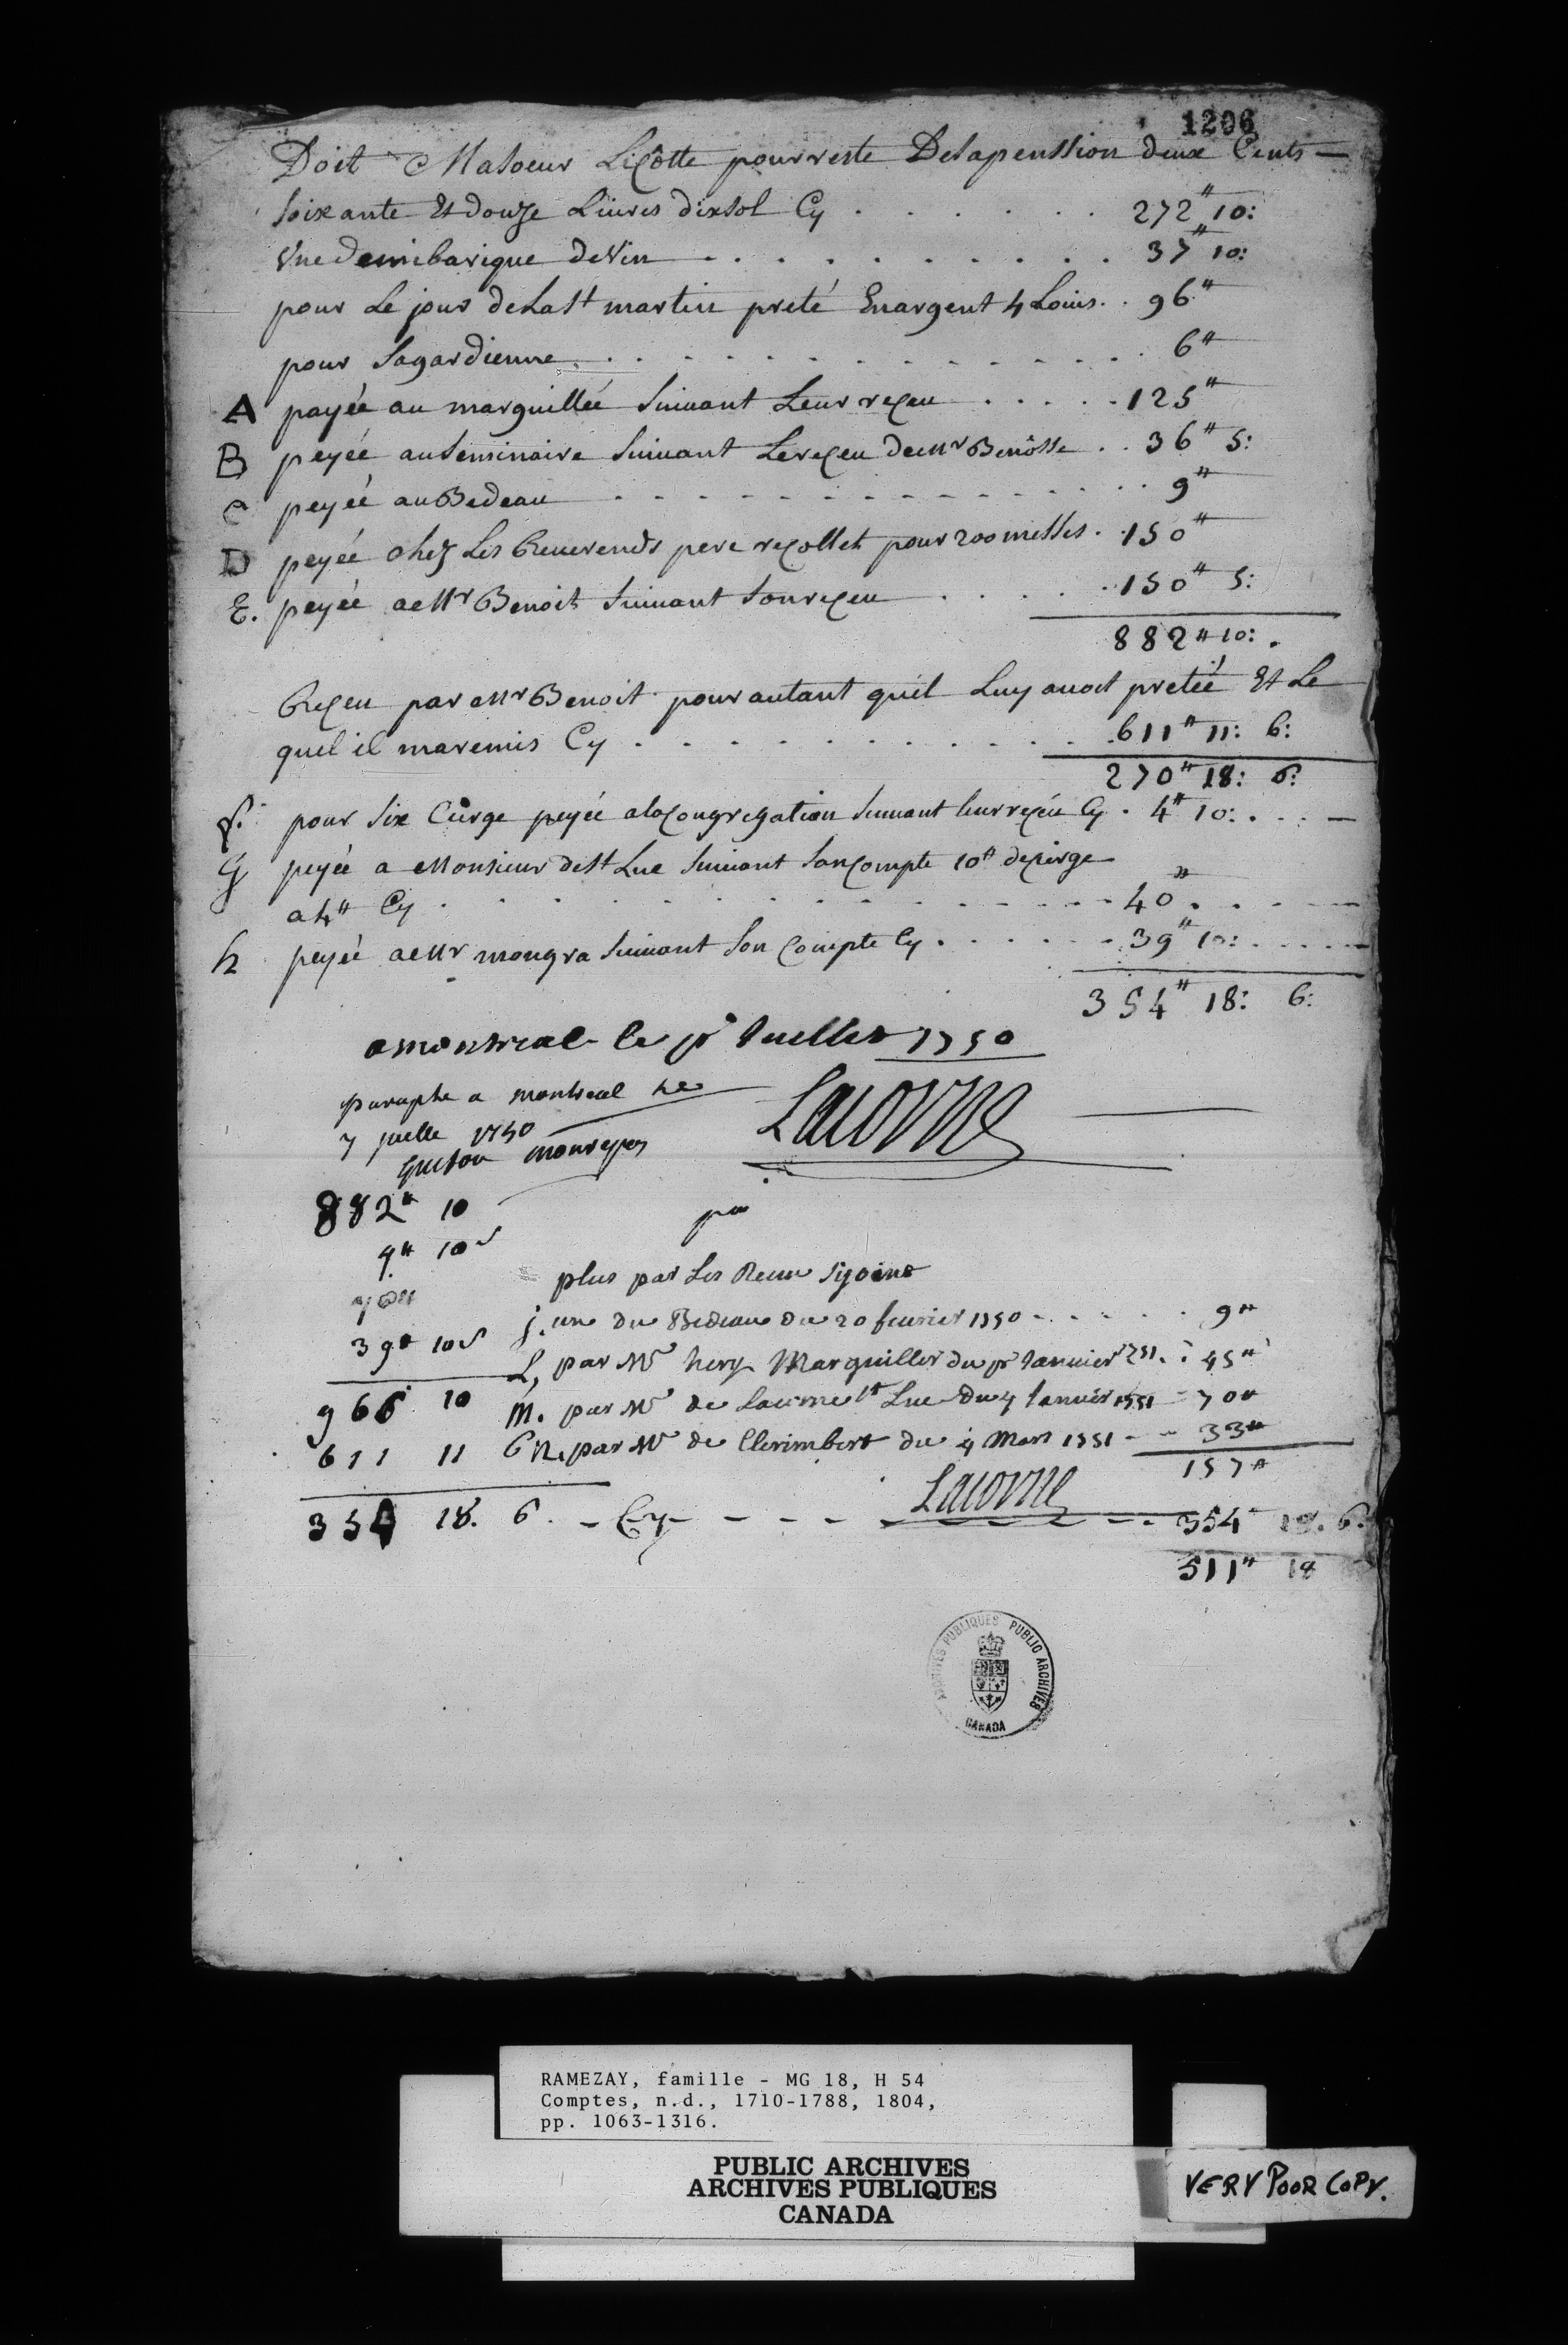 1206
Doit Masoeur Liçôtte pour reste Desapenssion deux Cents —
soixante Et douze Liures dixsol Cy . . . . . . 272# 10:
Vne Demibarique de Vin . . . . . . . . . . 37# 10:
pour Le jour de La St martin preté Enargent 4 Louis . . 96#
pour Sagardienne . . . . . . . . . . . . . . 6#
A payée au marguillée Suiuant Leur reçeu . . . . . 125#
B peyée auSeminaire Suiuant Lereçeu de Mr Benôsse . . 36# 5:
C peyée auBedeau . . . . . . . . . . . . . 9#
D peyée chez Les Reuerends pere reçollet pour 200 messes . 150#
E. peyée a Mr Benoit Suiuant Sonreçeu . . . . . 150# 5:
882# 10: .
Reçeu par Mr Benoit pour autant qu'il Luy auoit pretée Et Le
quel il maremis Cy . . . . . . . . . . . . 611# 11: 6:
270# 18: 6:
f. pour Six Cierge peyée alaçongregation Suiuant leurreçeu Cy . 4# 10: . . . —
G peyée a Monsieur de St Luc Suiuant Sonçompte 10# deçirge
a 4# Cy . . . . . . . . . . . . . . . 40# . . . . —
h peyée a Mr mongra Suiuant Son Compte Cy . . . . . . 39# 10: . . . . .
354# 18: 6:
a montreal le pr Juellet 1750
paraphe a montreal le
7 juelle 1750
Guiton monrepos
Lacorne
882# 10
4# 10s
pa
plus par Les Recus Sy joint
40#
j. un du Bedeau du 20 feurier 1750 - . . . . . 9#
39# 10s
L, par Mr hery Marguiller du pr Januier 1751 . : 45#
966 10 M. par Mr de Lacorne St Luc du 4 Januier 1751 - 70#
611 11 6 N. par Mr de Clerimbert du 4 Mars 1751 - - 33#
157#
Lacorne
354 18. 6. - Cy - - - - - 354 18. 6.
511# 18
ARCHIVES PUBLIQUES PUBLIC ARCHIVES
CANADA
RAMEZAY, famille - MG 18, H 54
Comptes, n.d., 1710-1788, 1804,
pp. 1063-1316.
PUBLIC ARCHIVES
ARCHIVES PUBLIQUES
CANADA
VERY POOR COPY.